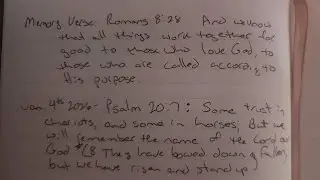 Memory Verse: Romans 8:28 And we know
that all things work together for
good to those who love God, to
those who are called according to
His purpose.
Jan. 4th Psalm 20:7: Some trust in
chariots, and some in horses; But we
will remember the name of the Lord our
God *(8 They have bowed down & fallen,
but we have risen and stand up)